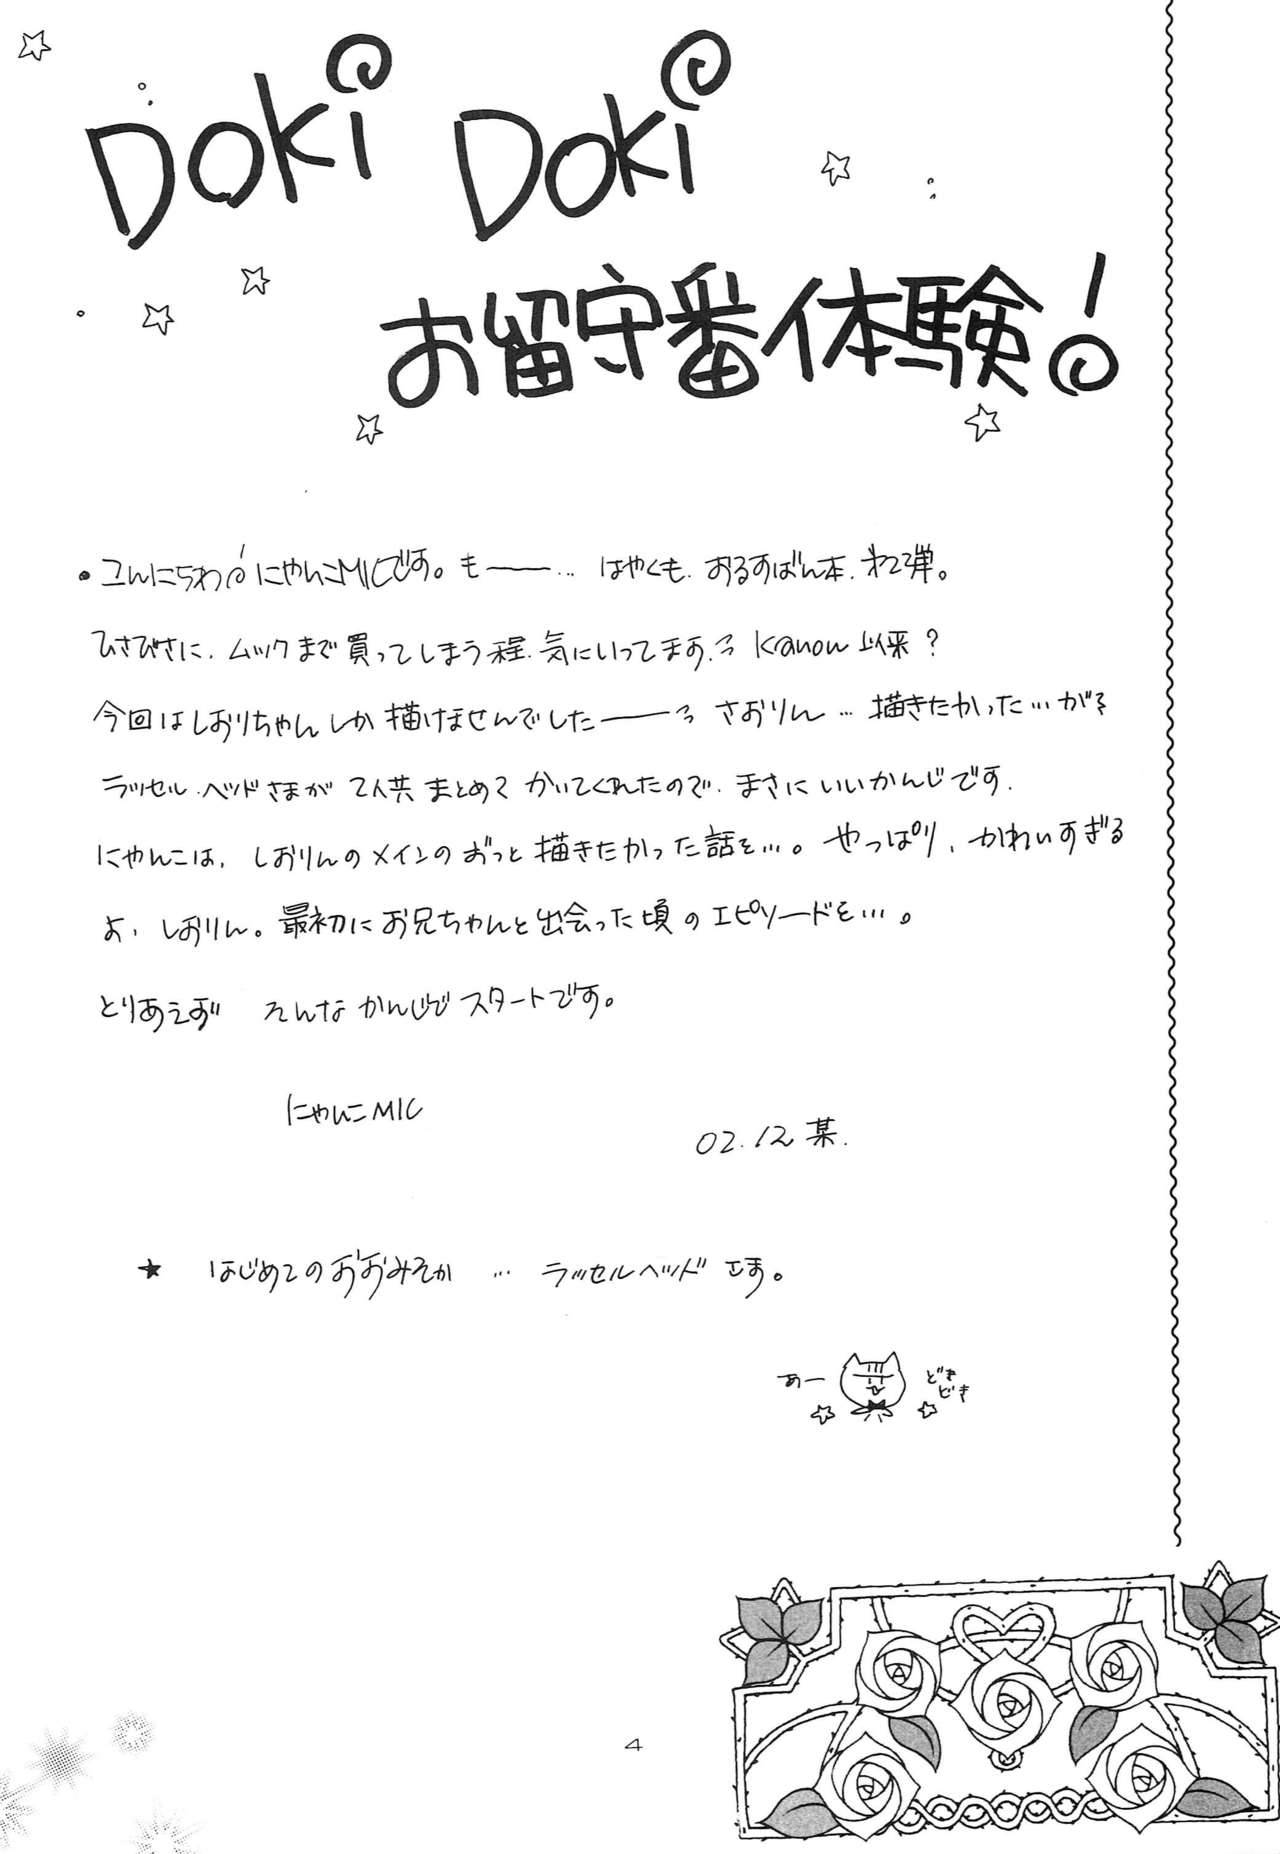 DOKi DOKi
お留守番体験!
・こんにちわ! にゃんこMICです。も――… はやくも、おるすばん本、第2弾。
ひさびさに、ムックまで買ってしまう程、気にいってます。 Kanon以来?
今回はしおりちゃんしか描けませんでした――― さおりん…描きたかった…がそ
ラッセル・ヘッドさまが 2人共まとめてかいてくれたので、まさにいいかんじです。
にゃんこは、しおりんのメインのずっと描きたかった話を…。やっぱり、かわいすぎる
よ、しおりん。最初にお兄ちゃんと出会った頃のエピソードを…。
とりあえず そんなかんじでスタートです。
にゃんこMIC
02.12 某.
★ はじめてのおおみそか … ラッセルヘッドさま。
あー
どき
どき
4